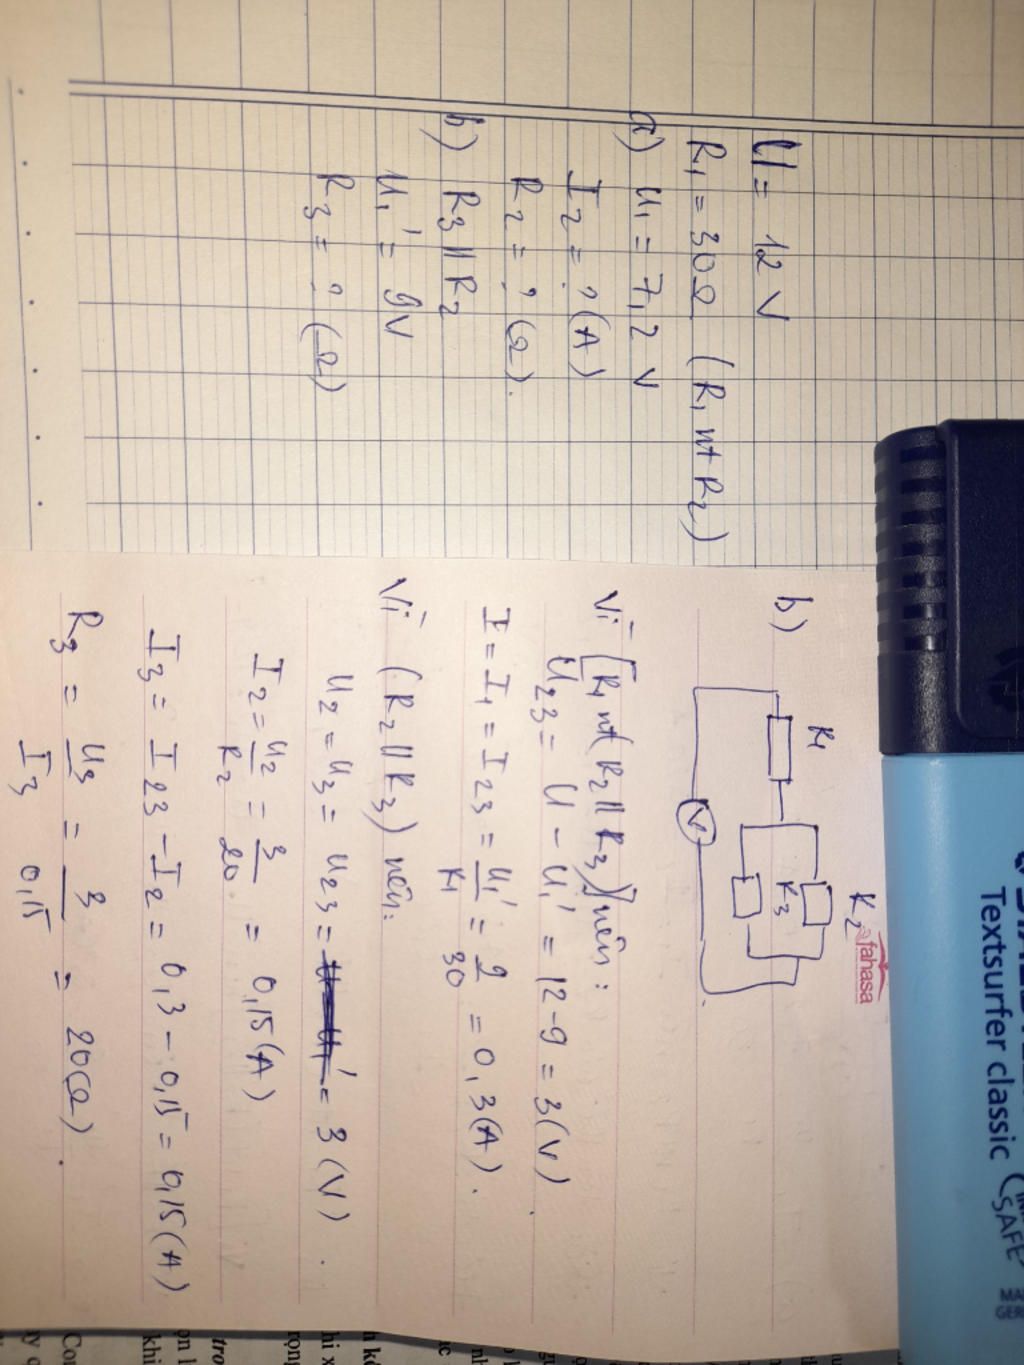 U = 12 V
R₁ = 30Ω (R₁ nt R₂)
a) U₁ = 7,2 V
I₂ = ? (A)
R₂ = ? (Ω).
b) R₃ || R₂
U₁' = 9V
R₃ = ? (Ω)
b)
R₁
R₂
R₃
V
fahasa
Vì [R₁ nt (R₂ || R₃)] nên:
U₂₃ = U - U₁' = 12 - 9 = 3 (V).
I = I₁ = I₂₃ = U₁'/R₁ = 9/30 = 0,3 (A).
Vì (R₂ || R₃) nên:
U₂ = U₃ = U₂₃ = U - U₁' = 3 (V).
I₂ = U₂/R₂ = 3/20 = 0,15 (A)
I₃ = I₂₃ - I₂ = 0,3 - 0,15 = 0,15 (A)
R₃ = U₃/I₃ = 3/0,15 = 20 (Ω).
Textsurfer classic
SAFE